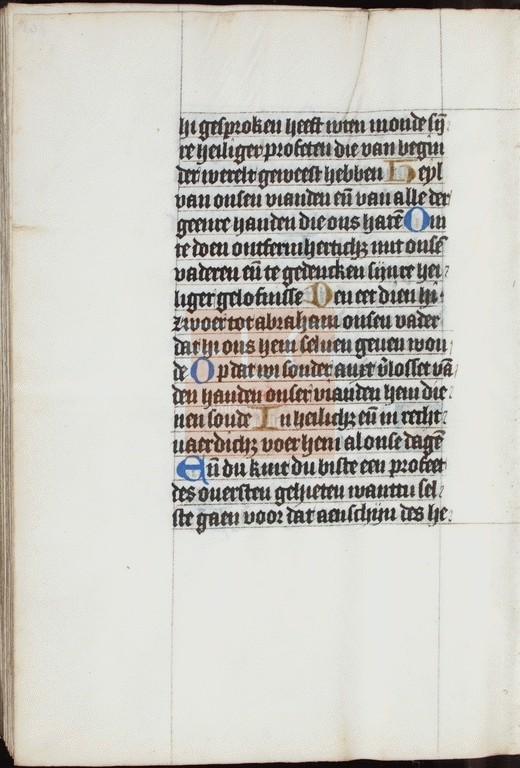 hi gesproken heeft wten monde sijn
re heiliger profeten die van begin
der werelt geweest hebben Heyl
van onsen vianden en̄ van alle der
geenre handen die ons hatē Om
te doen ontfermherticħ mit onsē
vaderen en̄ te gedencken sijnre hei
liger gelofnisse Den eer dien hi
zwoer tot abraham onsen vader
dat hi ons hem seluen geuen wou
de Op dat wi sonder anxt v̄losset vā
den handen onser vianden hem die
nen soude In heilicħ en̄ in recht
uaerdicħ voer hem al onse dagē
En̄ du kint du biste een profeet
des ouersten gehieten wanttu sel
ste gaen voor dat aenschijn des he